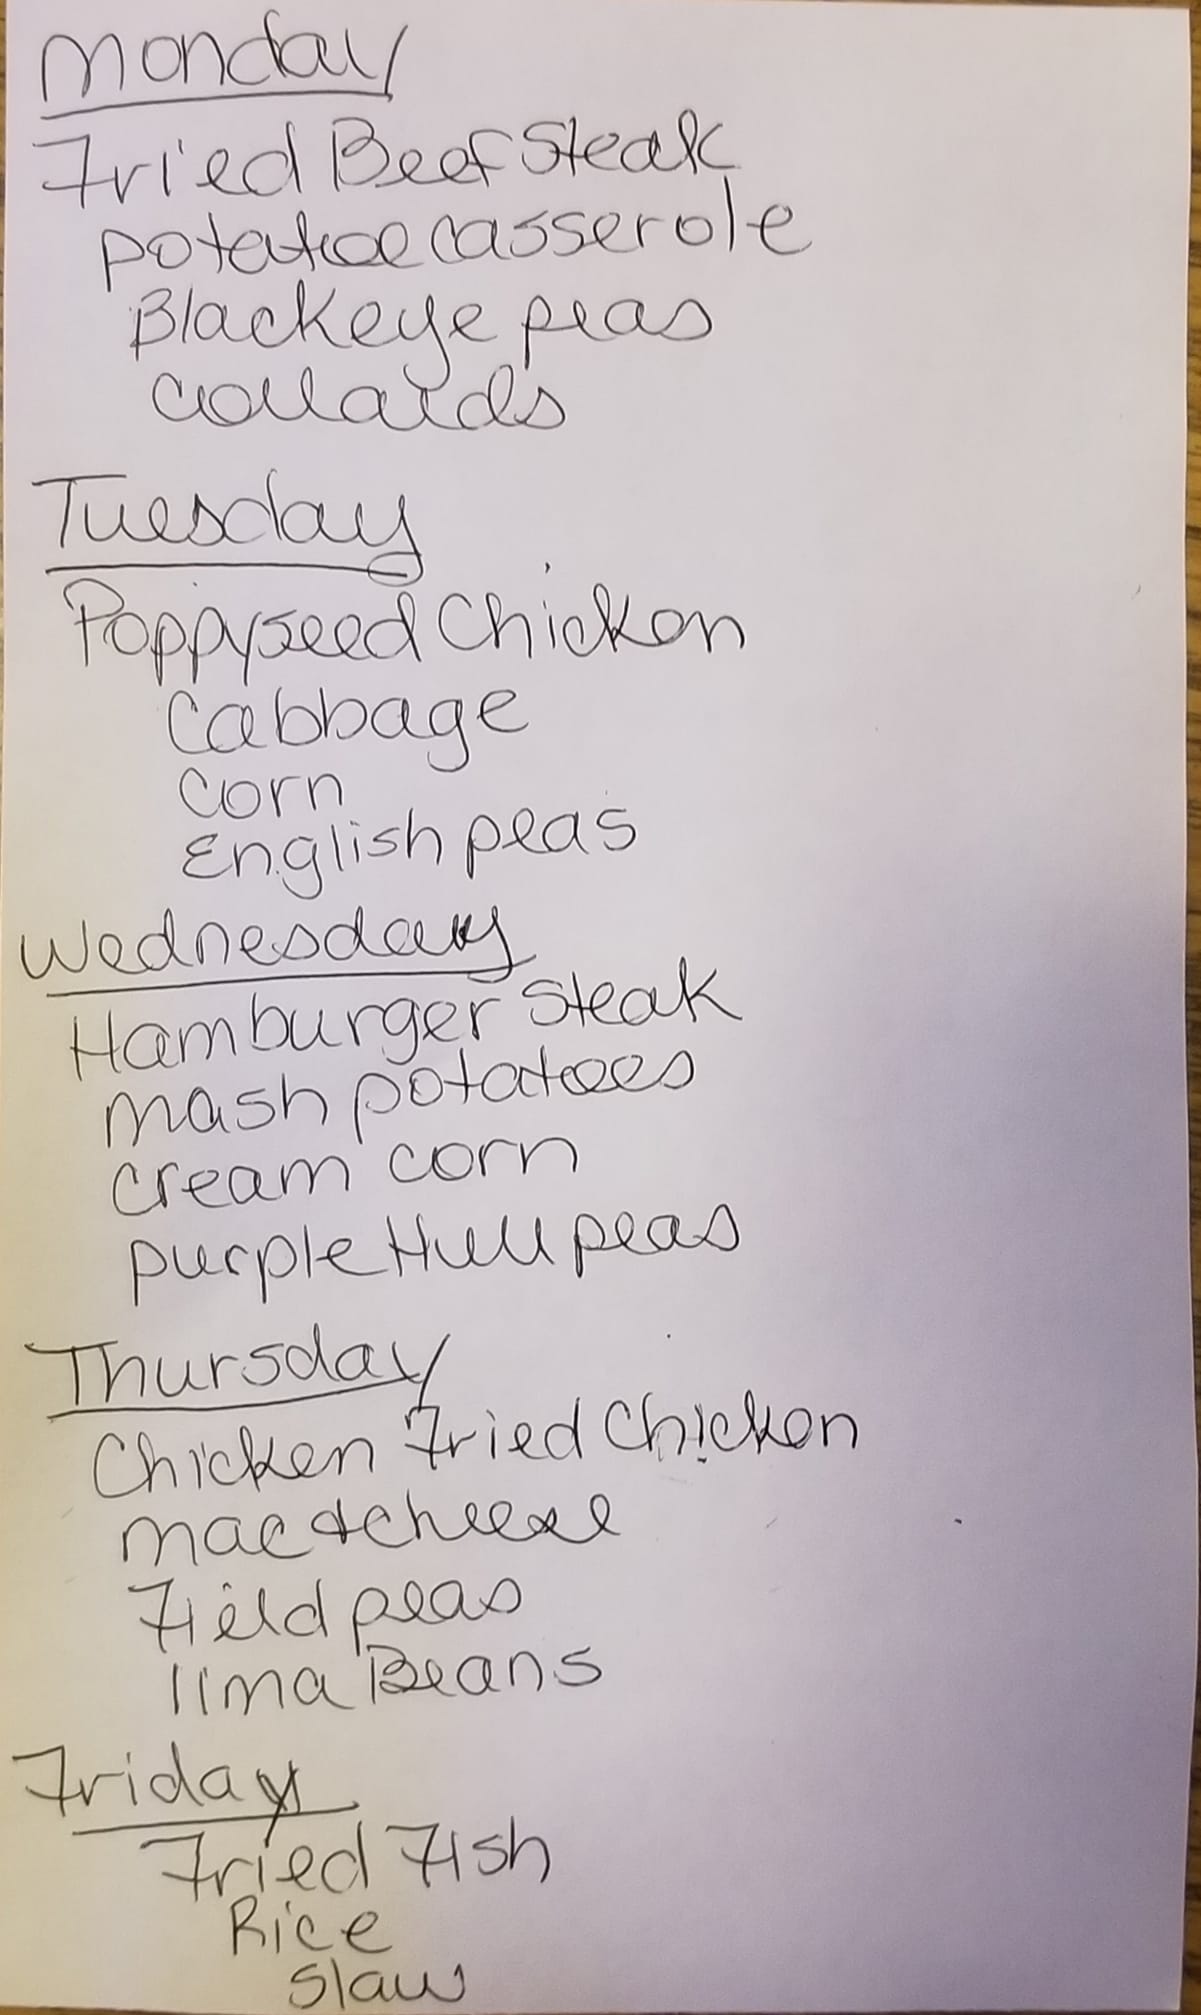 Monday
Fried Beef Steak
potatoe casserole
Blackeye peas
collards
Tuesday
Poppyseed Chicken
Cabbage
corn
English peas
Wednesday
Hamburger Steak
mash potatoes
cream corn
purple Hull peas
Thursday
Chicken Fried Chicken
mac & cheese
Field peas
lima Beans
Friday
Fried Fish
Rice
slaw